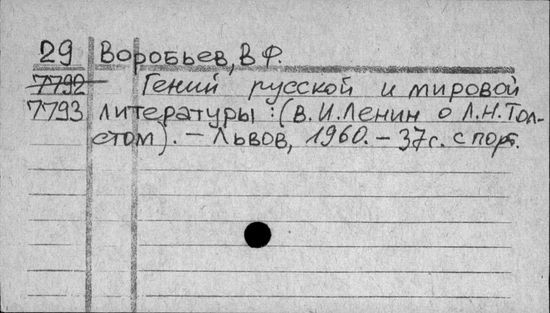 29 Воробьев, В Ф.
7792 Гений русской и мировой
7793 литературы: (В.И.Ленин о Л.Н.Тол-
стом). - Львов, 1960. - 37с. с порт.